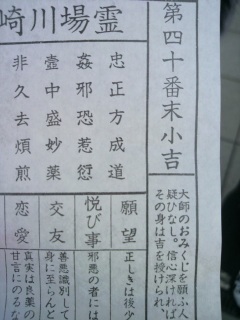 霊場川崎
第四十番末小吉
大師のおみくじを願ふ人
疑ひなし。信心深ければ、
その身は吉を授けられ
忠正方成道
姦邪恐惹愆
壺中盛妙薬
非久去煩煎
願望
正しきは後少
悦び事
邪悪の者には
交友
善悪識別して
身に至らんと
恋愛
真実は良薬の
甘言にのるな